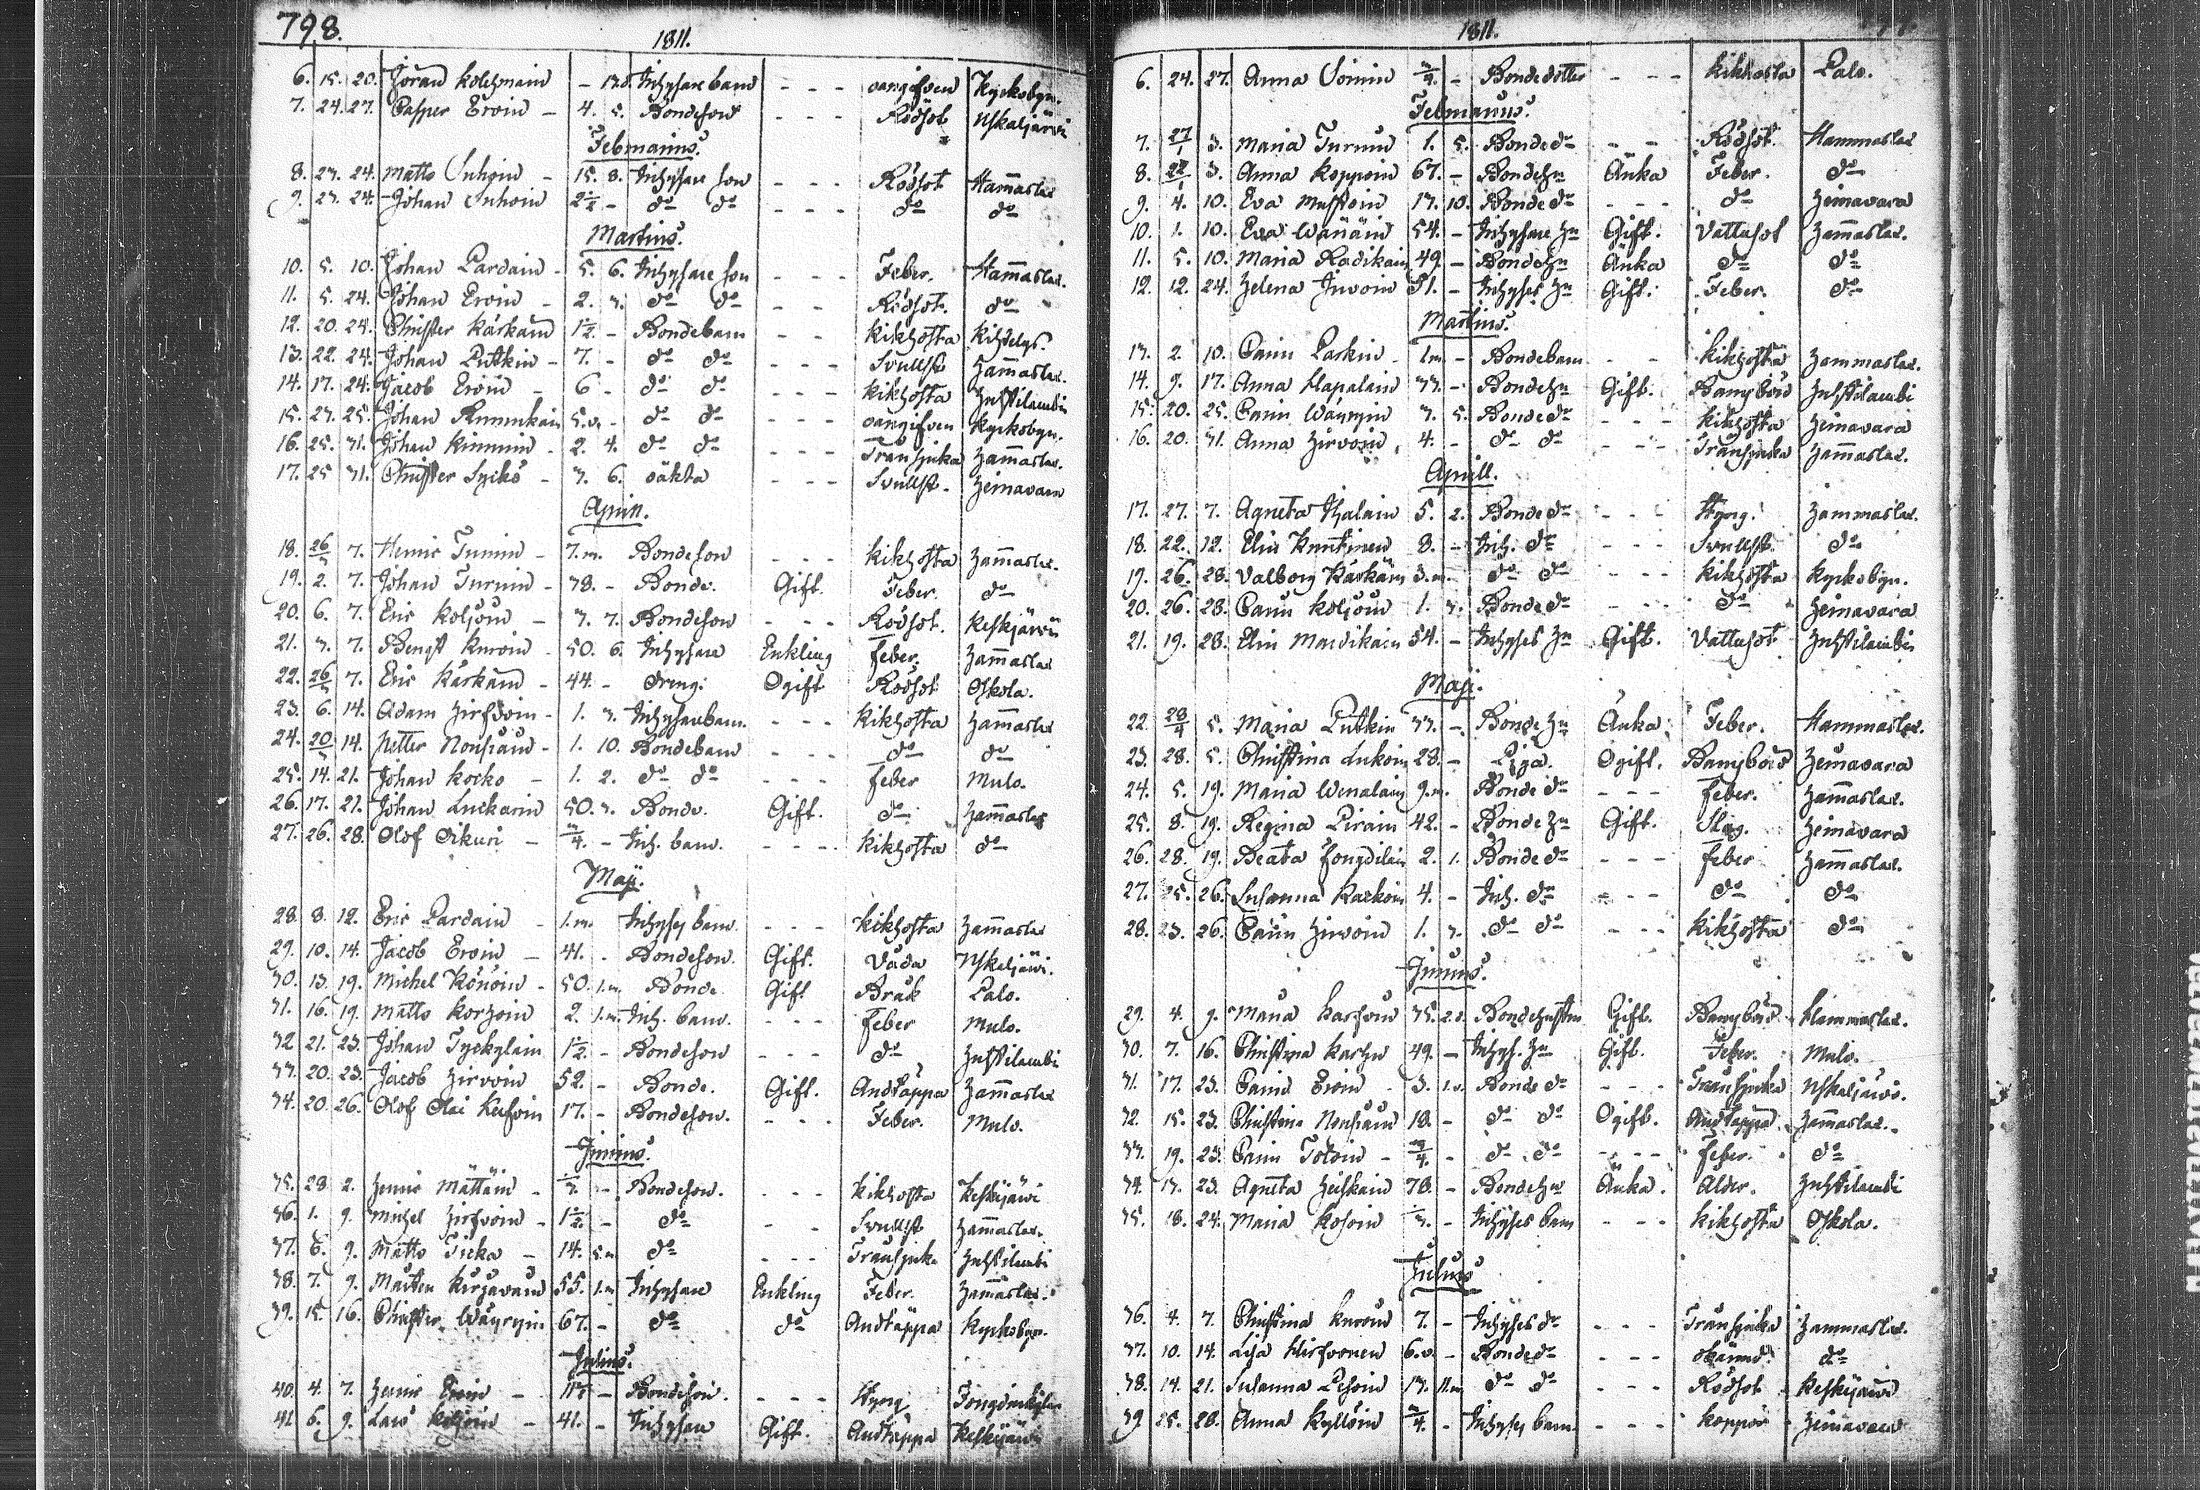 798.
1811.
6. 15. 20. Jöran Kolehmain - 17.d. Inhysare barn - - - oangifven Kyrkobyn.
7. 24. 27. Casper Ervin - 4. 5. Bondeson - - - Rödsot Uskaljärvi
Februarius.
8. 23. 24. Matts Inhoin - 15. 8. Inhysare son - - - Rödsot Hammaslax
9. 23. 24. Johan Inhoin 2½ - do do - - - do do
Martius.
10. 5. 10. Johan Pardain - 5. 6. Inhysare son - - - Feber. Hammaslax.
11. 5. 24. Johan Ervin - 2. 3. do do - - Rödsot. do
12. 20. 24. Christer Kärkäin 1½ - Bondebarn - - kikhosta
13. 22. 24. Johan Putkin - 7. - do do - - - Svullst Hammaslax.
14. 17. 24. Jacob Ervin - 6 - do do - - - kikhosta Huhtilambi
15. 23. 25. Johan 5.v. - do do - - - oangifven Kyrkobyn.
16. 25. 31. Johan Kinnuin - 2. 4. do do - - - Transjuka Hammaslax.
17. 25 31. Christer - 3. 6. oäkta - - - Svullst. Heinavara
April.
18. 26/3 7. Henric Turuin - 7.m. Bondeson - - - kikhosta Hammaslax.
19. 2. 7. Johan Turuin - 38. - Bonde. Gift. Feber. do
20. 6. 7. Eric Koljoin - 3. 7. Bondeson - - - Rödsot. Keskijärvi
21. 3. 7. Bengt Kuroin - 50. 6. Inhysare Enkling Feber. Hammaslax
22. 26/3 7. Eric Kärkäin - 44. - dreng. Ogift Rödsot Oskola.
23. 6. 14. Adam Hirfvoin - 1. 3. Inhysarebarn. - - - kikhosta Hammaslax
24. 20/3 14. Petter Nousiain - 1. 10. Bondebarn - - - do do
25. 14. 21. Johan Kocko - 1. 2. do do - - - feber Mulo.
26. 17. 21. Johan Luckarin 50. 3. Bonde. Gift. do Hammaslax
27. 26. 28. Olof Oikari - 3/4. - Inh. barn. - - - kikhosta do
Maji.
28. 8. 12. Eric Pardain - 1.m. Inhyses barn. - - - kikhosta Hammaslax
29. 10. 14. Jacob Ervin - 41. - Bondeson. Gift. Våda Uskaljärvi.
30. 13. 19. Michel Könöin - 50. 1.m. Bonde Gift Bråk Palo.
31. 16. 19. Matts Korhoin 2. 1.m. Inh. barn. - - - feber Mulo.
32 21. 23. Johan Tyckylain 1½ - Bondeson - - - do Huhtilambi
33. 20. 23. Jacob Hirvoin 52. - Bonde. Gift. Andtäppa Hammaslax
34. 20. 26. Olof Olai 17. - Bondeson. - - - Feber. Mulo.
Junius.
35. 28 2. Henric Mättäin - - Bondeson. - - - kikhosta Keskijärvi
36. 1. 9. Michel Hirfvoin - 1½ - do - - Svullst Hammaslax.
37. 6. 9. Matts Ticka - 14. 5.m do - - - Transjuk. Huhtilambi
38. 7. 9. Mårten Kirjavain 55. 1.m Inhysare Enkling Feber. Hammaslax.
39. 15. 16. Christer Wäyryin 67. - do do Andtäppa Kyrkobyn.
Julius.
40. 4. 7. Henric Ervin - - Bondeson. - - - Styng
41. 6. 9. Lars Koljoin - 41. - Inhysare Gift. Andtäppa Keskijärvi
1811.
6. 24. 27. Anna Soinin 3/4. - Bondedotter - - - kikhosta Palo.
Februarius.
7. 27/1 3. Maria Turuin 1. 5. Bonde do - - Rödsot. Hammaslax
8. 22/1 3. Anna Koppoin 67. - Bondehu Änka Feber. do
9. 4. 10. Eva Mustoin 13. 10. Bonde do - - - do Heinavara
10. 1. 10. Eva Wänäin 54. - Inhysare hu Gift. Vattusot Hammaslax.
11. 5. 10. Maria Radikain 49. - Bondehu Änka do do
12. 12. 24. Helena Juvoin 51. - Inhyses hu Gift. Feber. do
Martius.
13. 2. 10. Carin Laskin - 1.m - Bondebarn - - kikhosta Hammaslax.
14. 9. 17. Anna Hapalain 33. - Bondehu Gift. Barnsbörd Huhtilambi
15. 20. 25. Carin Wäyryin 3. 5. Bonde do - - - kikhosta Heinavara
16. 20. 31. Anna Hirvoin 4. - do do - - - Transjuka Hammaslax.
Aprill.
17. 27. 7. Agneta Ihalain 5. 2. Bonde do - - - Styng. Hammaslax.
18. 22. 12. Elin Knutinen 8. - Inh. do - - - Svullst. do
19. 26. 28. Valborg Kärkäin 3.m. - do do - - - kikhosta Kyrkobyn.
20. 26. 28. Carin Koljoin 1. 3. Bonde do - - - do Heinavara
21. 19. 28. Elin Mardikain 54. - Inhyses hu Gift. Vattusot Huhtilambi
Maji.
22. 28/4 5. Maria Putkin 73. - Bondehu Änka Feber. Hammaslax.
23. 28. 5. Christina Lukoin 28. - Piga. Ogift. Barnsbörd Heinavara
24. 5. 19. Maria Wenalain 9.m. Bonde do - - - feber. Hammaslax.
25. 8. 19. Regina Pirain 42. - Bondehu Gift. Slag. Heinavara
26. 28. 19. Beata 2. 1. Bonde do - - - feber Hammaslax.
27. 25. 26. Susanna Karkoin 4. - Inh. do - - - do do
28. 23. 26. Carin Hirvoin 1. 3. do do - - - kikhosta do
Junius.
29. 4. 9. Maria Karfvin 35. 2.d. Bondehustru Gift. Barnsbörd Hammaslax.
30. 7. 16. Christina Karhu 49. - Inhys. hu Gift. Feber. Mulo.
31. 17. 23. Carin Ervin - 3. 1.v. Bonde do - - - Transjuka Uskaljärvi.
32. 15. 23. Christina Nousiain 18. - do do Ogift. Andtäppa Hammaslax.
33. 19. 23. Carin Toloin - 3/4. - do do - - - Feber. do
34. 13. 23. Agneta Heiskain 78. - Bondehu Änka. Ålder. Huhtilambi
35. 18. 24. Maria Kosoin - Inhyses barn - - - kikhosta Oskola.
Julius
36. 4. 7. Christina Kuroin 7. - Inhyses do - - - Transjuka Hammaslax.
37. 10. 14. Lisa Hirfvonen 6.v. - Bonde do - - - okänd. do
38. 14. 21. Susanna Pesoin 13. 11.m do do - - - Rödsot Keskijärvi
39 25. 28. Anna Kyllöin 3/4. - Inhyses barn. - - - koppor Heinavara